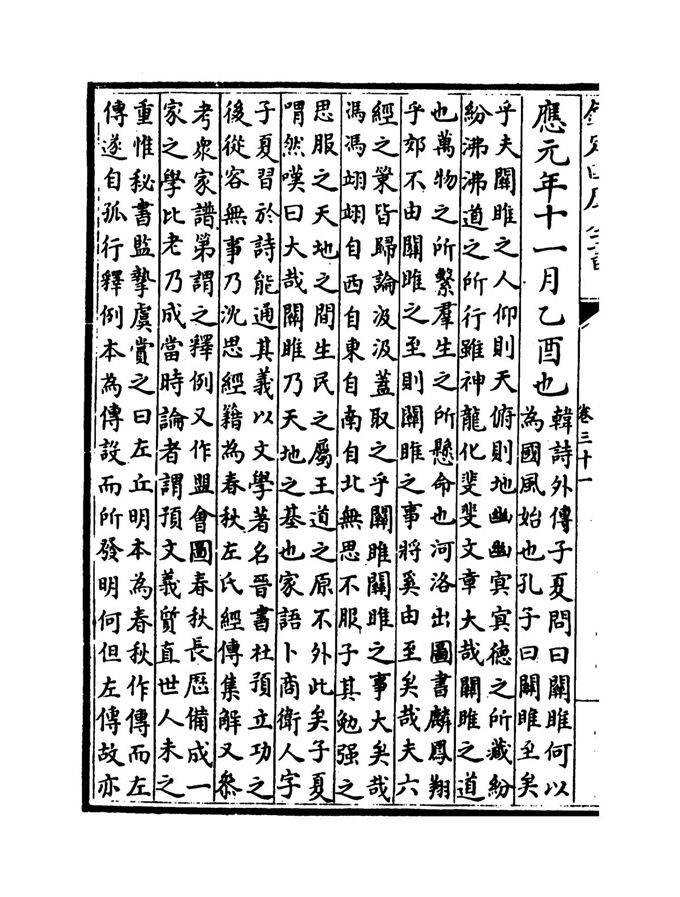 卷三十一
應元年十一月乙酉也
韓詩外傳子夏問曰關雎何以
為國風始也孔子曰關雎至矣
乎夫關雎之人仰則天俯則地幽幽冥冥德之所藏紛
紛沸沸道之所行雖神龍化斐斐文章大哉關雎之道
也萬物之所繫羣生之所懸命也河洛出圖書麟鳳翔
乎郊不由關雎之至則關雎之事將奚由至矣哉夫六
經之策皆歸論汲汲蓋取之乎關雎關雎之事大矣哉
馮馮翊翊自西自東自南自北無思不服子其勉强之
思服之天地之間生民之屬王道之原不外此矣子夏
喟然嘆曰大哉關雎乃天地之基也家語卜商衛人字
子夏習於詩能通其義以文學著名晉書杜預立功之
後從容無事乃沈思經籍為春秋左氏經傳集解又叅
考衆家譜第謂之釋例又作盟會圖春秋長歷備成一
家之學比老乃成當時論者謂預文義質直世人未之
重惟秘書監摯虞賞之曰左丘明本為春秋作傳而左
傳遂自孤行釋例本為傳設而所發明何但左傳故亦